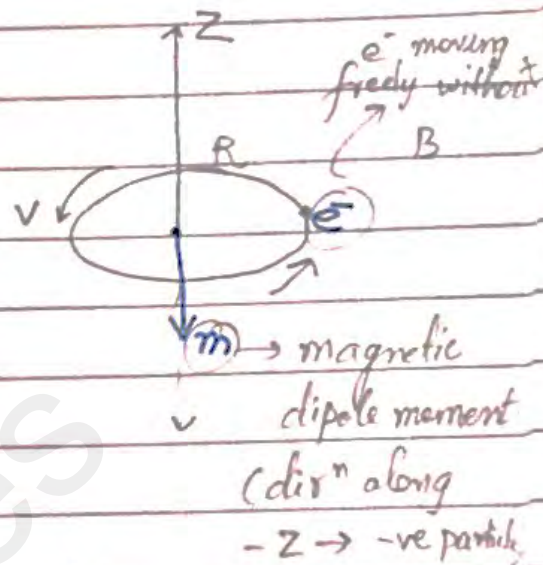 Z
e⁻ moving
fredy without
R
B
V
e⁻
m → magnetic
v
dipole moment
(dirⁿ along
-Z → -ve particle